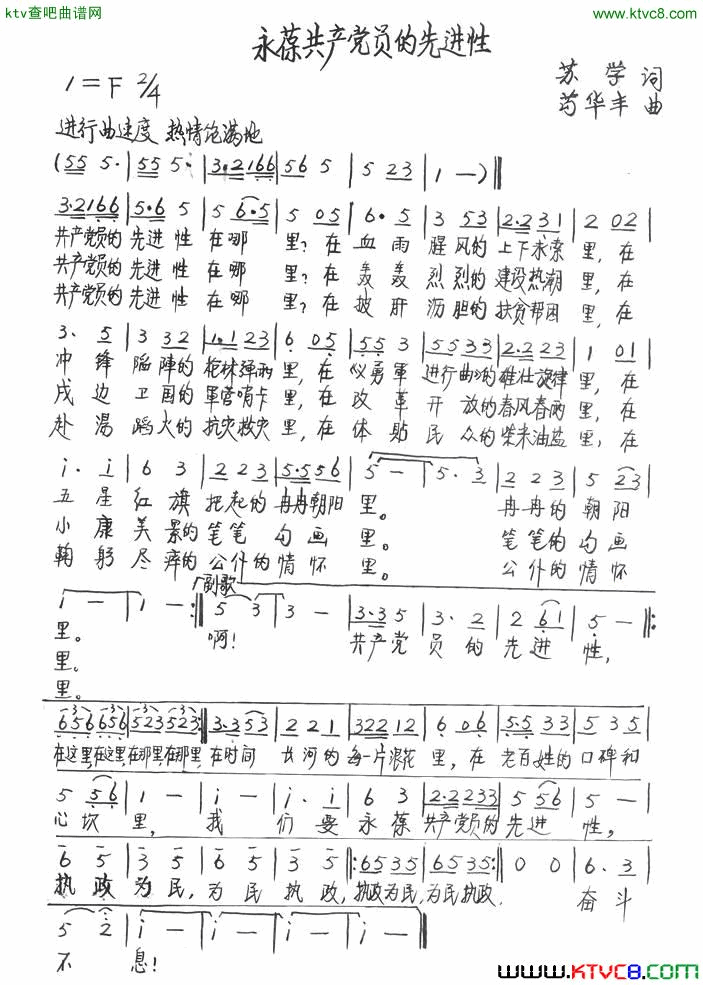 ktv查吧曲谱网
www.ktvc8.com
永葆共产党员的先进性
1=F 2/4
苏 学 词
芶华丰 曲
进行曲速度 热情饱满地
(55 5· | 55 5· | 3·2166 | 56 5 | 5 23 | 1 — )‖
3·2166 | 5·6 5 | 5 6·5 | 5 05 | 6· 5 | 3 53 | 2·231 | 2 02 |
共产党员的 先进 性 在哪 里? 在 血 雨 腥 风的 上下求索 里, 在
共产党员的 先进 性 在哪 里? 在 轰 轰 烈 烈的 建设热潮 里, 在
共产党员的 先进 性 在哪 里? 在 披 肝 沥 胆的 扶贫帮困 里, 在
3· 5 | 3 32 | 1·123 | 6 05 | 55 3 | 5533 | 2·223 | 1 01 |
冲 锋 陷 陣的 枪林弹雨 里, 在 《义勇軍 进行曲》的 雄壮旋律 里, 在
戍 边 卫 国的 軍营哨卡 里, 在 改 革 开 放的 春风春雨 里, 在
赴 湯 蹈 火的 抗灾救灾 里, 在 体 貼 民 众的 柴米油盐 里, 在
i· i | 6 3 | 2 2 3 | 5·556 | 5 — | 5· 3 | 2 2 3 | 5 23 |
五 星 红 旗 托起的 冉冉朝阳 里。 冉冉的 朝阳
小 康 美 景的 笔笔 勾画 里。 笔笔的 勾画
鞠 躬 尽 瘁的 公仆的情怀 里。 公仆的 情怀
副歌
i — | i — :‖ 5 3 | 3 — | 3·3 5 | 3· 2 | 2 61 | 5 — ‖:
里。 啊! 共产党 员 的 先进 性,
里。
里。
656 656 | 523 523 :‖ 3·3 53 | 2 2 1 | 322 12 | 6 06 | 5·5 33 | 5 35 |
在这里,在这里,在那里,在那里, 在时间 长河的 每一片浪花 里, 在 老百姓的 口碑和
5 56 | 1 — | i — | i· i | 6 3 | 2·2233 | 5 56 | 5 — |
心坎 里, 我 们 要 永葆 共产党员的 先进 性,
6 5 | 3 5 | 6 5 | 3 5 ‖: 6535 | 6535 :‖ 0 0 | 6· 3 |
执政 为民, 为民 执政, 执政为民, 为民执政. 奋斗
5 2 | i — | i — | i — | i — ‖
不 息!
www.KTVC8.com